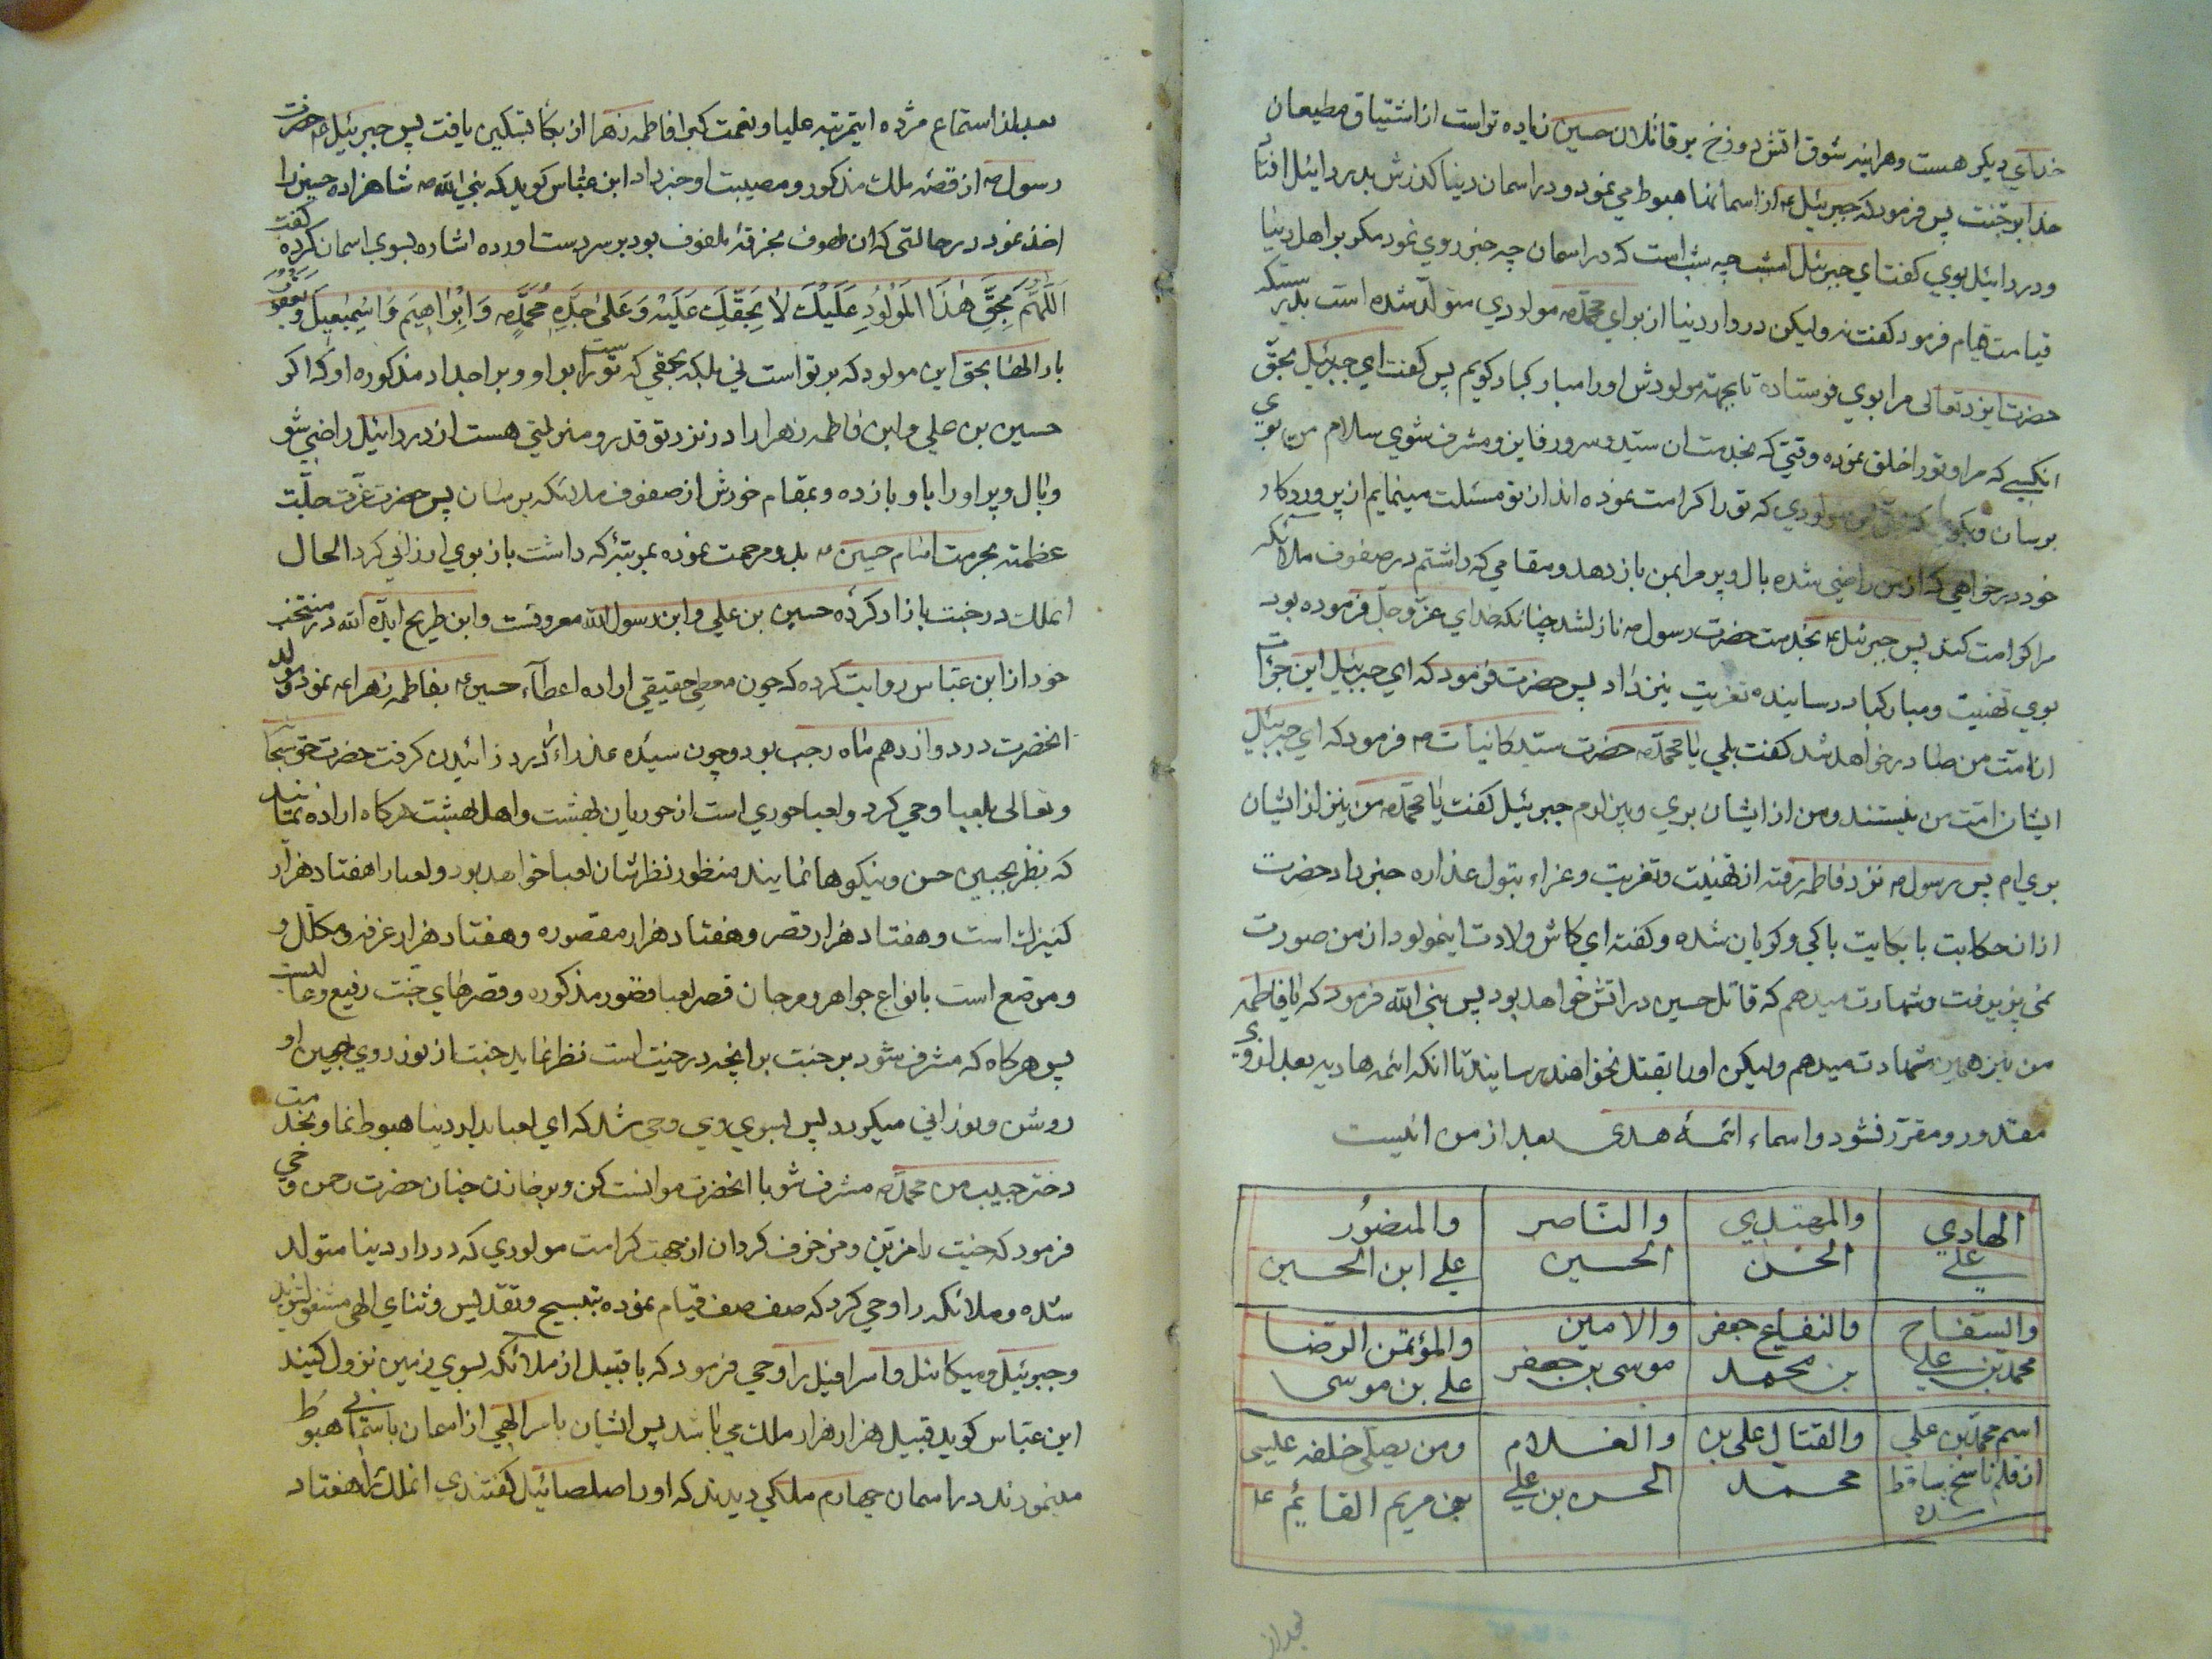 خدای دیکر هست وهراینه شوق اتش دوزخ بر قاتلان حسین زیاده تر است از اشتیاق مطیعان
خدا بوجنت پس فرمود که جبرئیل از اسمانها هبوط می نمود ودر اسمان دنیا کذرش بدردائیل افتاد
ودردائیل بوی کفت ای جبرئیل امشب چه شب است که در اسمان چه خبر روی نمود مکر بر اهل دنیا
قیامت قیام فرمود کفت نه ولیکن در دار دنیا از برای محمد مولودی متولد شده است بدرستیکه
حضرت ایزد تعالی مرا بوی فرستاده تا بجهته مولودش اورا مبارکباد کویم پس کفت ای جبرئیل بحق
انکسی که مرا وتورا خلق نموده وقتی که بخدمت ان سید وسرور فایز ومشرف شوی سلام من بوی
برسان وبکوی که بحق این مولودی که تورا کرامت نموده اند از تو مسئلت مینمایم از پروردکار
خود در خواهی که از من راضی شده بال وپر مرا بمن باز دهد ومقامی که داشتم در صفوف ملائکه
مرا کرامت کند پس جبرئیل بخدمت حضرت رسول نازل شد چنانکه خدای عز وجل فرموده بود
بوی تهنیت ومبارکباد رسانیده تعزیت نیز داد پس حضرت فرمود که ای جبرئیل این جرات
از امت من صادر خواهد شد کفت بلی یا محمد حضرت سید کاینات فرمود که ای جبرئیل
ایشان امت من نیستند ومن از ایشان بری وبیزارم جبرئیل کفت یا محمد من نیز از ایشان
بری ام پس رسول نزد فاطمه رفته از تهنیت وتعزیت وعزاء بتول عذاره خبر داد حضرت
ازان حکایت با بکایت باکی وکریان شده وکفته ای کاش ولادت اینمولود از من صورت
نمی پذیرفت وشهادت میدهم که قاتل حسین در اتش خواهد بود پس نبی الله فرمود که یا فاطمه
من نیز همین شهادت میدهم ولیکن اورا بقتل نخواهند رسانید تا انکه ائمه هادیه بعد از وی
مقدور ومقرر نشود واسماء ائمهٔ هدی بعد از من اینست
الهادي علي | والمهتدي الحسن | والناصر الحسين | والمنصور علي ابن الحسين
والسفاح محمد بن علي | والنفاع جعفر بن محمد | والامين موسى بن جعفر | والمؤتمن الرضا علي بن موسى
اسم محمد بن علي از قلم ناسخ ساقط شده | والفتال علي بن محمد | والعلام الحسن بن علي | ومن يصلي خلفه عليسى بن مريم القائم
بعد از استماع مژده اینمرتبه علیا ونعمت کبرا فاطمه زهرا از بکا تسکین یافت پس جبرئیل حضرت
رسول از قصه ملک مذکور ومصیبت او خبر داد ابن عباس کوید که نبی الله شاهزاده حسین را
اخذ نمود در حالتی که ان ملفوف بود بر سر دست اورده اشاره بسوی اسمان کرده کفت
اَللّهُمَّ بِحَقِّ هٰذَا المَولُودِ عَلَيْكَ لاٰ بِحَقِّكَ عَلَيْهِ وَعَلىٰ جَدِّهِ مُحَمَّدٍ وَاِبْراهِيمَ وَاِسْمٰعِيلَ وَيَعقُوبَ
بار الها بحق این مولود که بر تو است نی بلکه بحقی که تورا ست بر او وبر اجداد مذکوره او که اکر
حسین بن علی وابن فاطمه زهرا را در نزد تو قدر ومنزلتی هست از دردائیل راضی شو
وبال وپر اورا باو باز ده وبمقام خودش از صفوف ملائکه برسان پس حضرت عزت جلّت
عظمته بحرمت امام حسین بدو مرحمت نموده بمرتبه که داشت باز بوی ارزانی کرد الحال
انملک در جنت بازاد کرده حسین بن علی وابن رسول الله معروفست وابن طریح ایده الله در منتخب
خود از ابن عباس روایت کرده که چون معطی حقیقی اراده اعطآء حسین بفاطمه زهرا نمود ومولد
انحضرت در دوازدهم ماه رجب بود وچون سیده عذراء را درد زائیدن کرفت حضرت حق سبحانه
وتعالی بلعبا وحی کرد ولعبا حوری است از حوریان بهشت واهل بهشت هرکاه اراده نمایند
که نظر بچیزی حسن ونیکوها نمایند منظور نظرشان لعبا خواهد بود ولعبا را هفتاد هزار
کنیزک است وهفتاد هزار قصر وهفتاد هزار مقصوره وهفتاد هزار غرفه ومکلل و
ومرصع است بانواع جواهر ومرجان قصر لعبا قصور مذکوره وقصرهای جنت رفیع وعالیست
پس هرکاه که مشرف شود بر جنت بر انچه در جنت است نظر نماید جنت از نور روی وجبین او
روشن ونورانی میکردد پس بسوی وی وحی شد که ای لعبا بدار دنیا هبوط نما وبخدمت
دختر حبیب من محمد مشرف شو با انحضرت موانست کن وبر خازن جنان حضرت رحمن وحی
فرمود که جنت را مزین ومزخرف کردان از جهت کرامت مولودی که در دار دنیا متولد
شده وملائکه را وحی کرد که صف صف قیام نموده بتسبیح وتقدیس وثنای الهی مشغول شوید
وجبرئیل ومیکائیل واسرافیل را وحی فرمود که با قبیل از ملائکه بسوی زمین نزول کنید
ابن عباس کوید قبیل هزار هزار ملک می باشد پس ایشان بامر الهی از اسمان باسمانی هبوط
مینمودند در اسمان چهارم ملکی دیدند که اورا صلصائیل کفتندی انملک را هفتاد